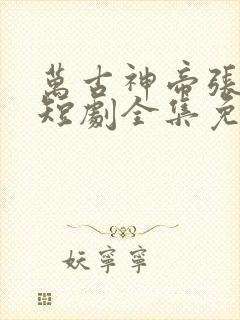 萬古神帝張
短劇全集免
妖寧寧